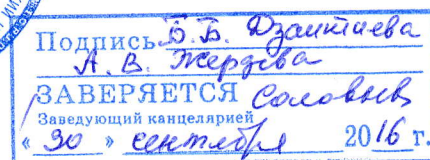 Подпись Б.Б. Дзантиева
А.В. Жердева
ЗАВЕРЯЕТСЯ Соловьев
Заведующий канцелярией
« 30 » сентября 2016 г.